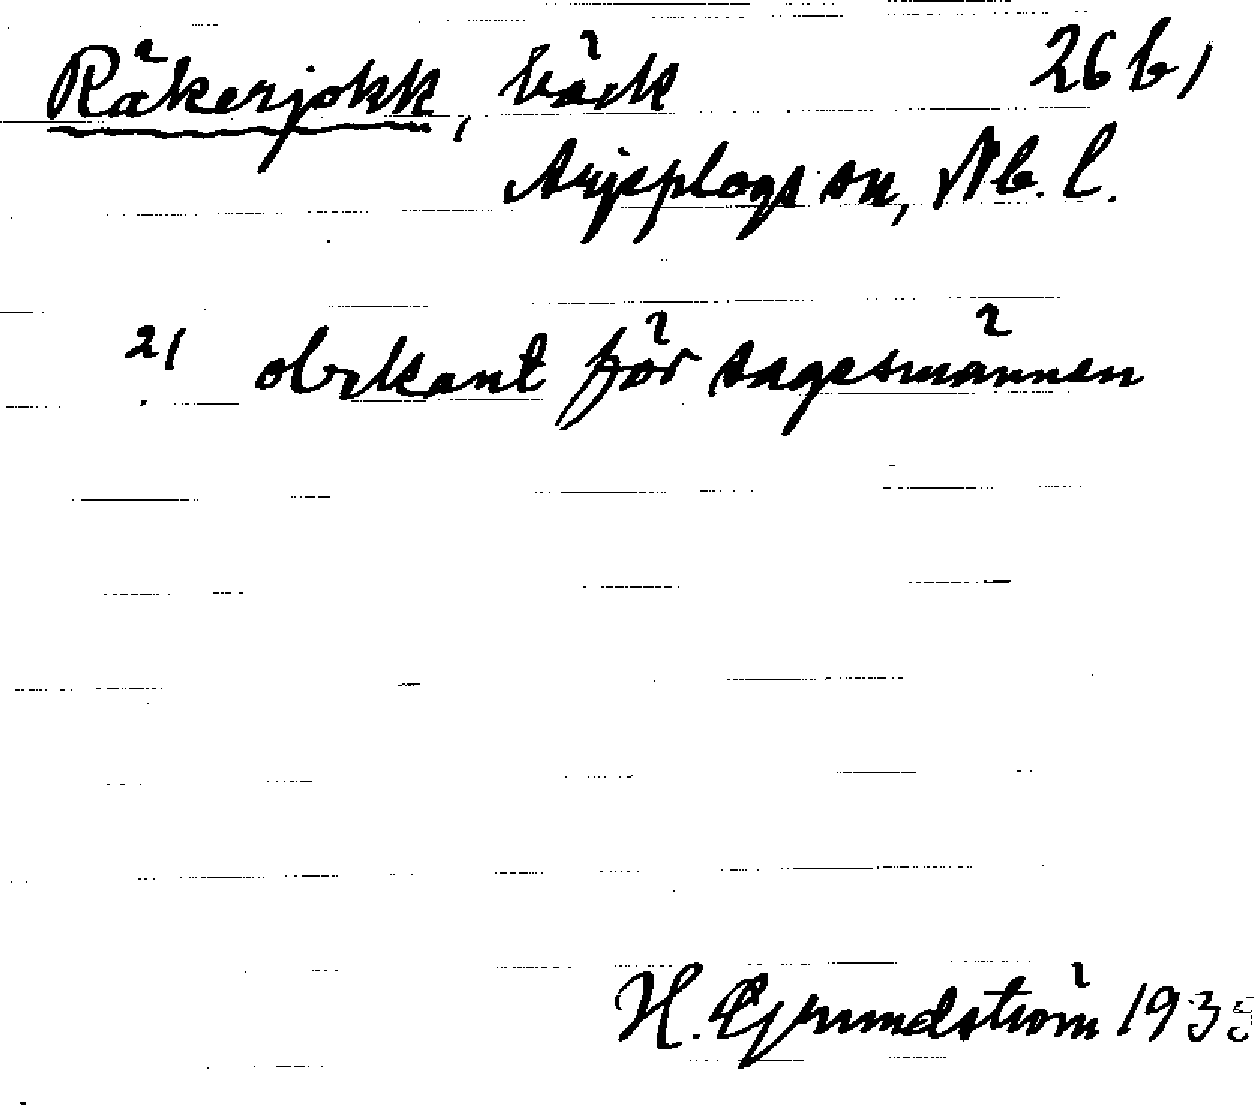 Räkerjokk, bäck 26 b,
Arjeplogs sn, Nb. l.
2/ obekant för sagesmännen
H. Grundström 1935